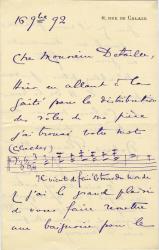 16 9bre 92
21, RUE DE CALAIS
Cher Monsieur Detaille,
Hier en allant à la
Gaîté pour la distribution
des rôles de ma pièce
j'ai trouvé votre mot
(Cliché)
j'ai le grand plaisir
de vous faire remettre
une baignoire pour le